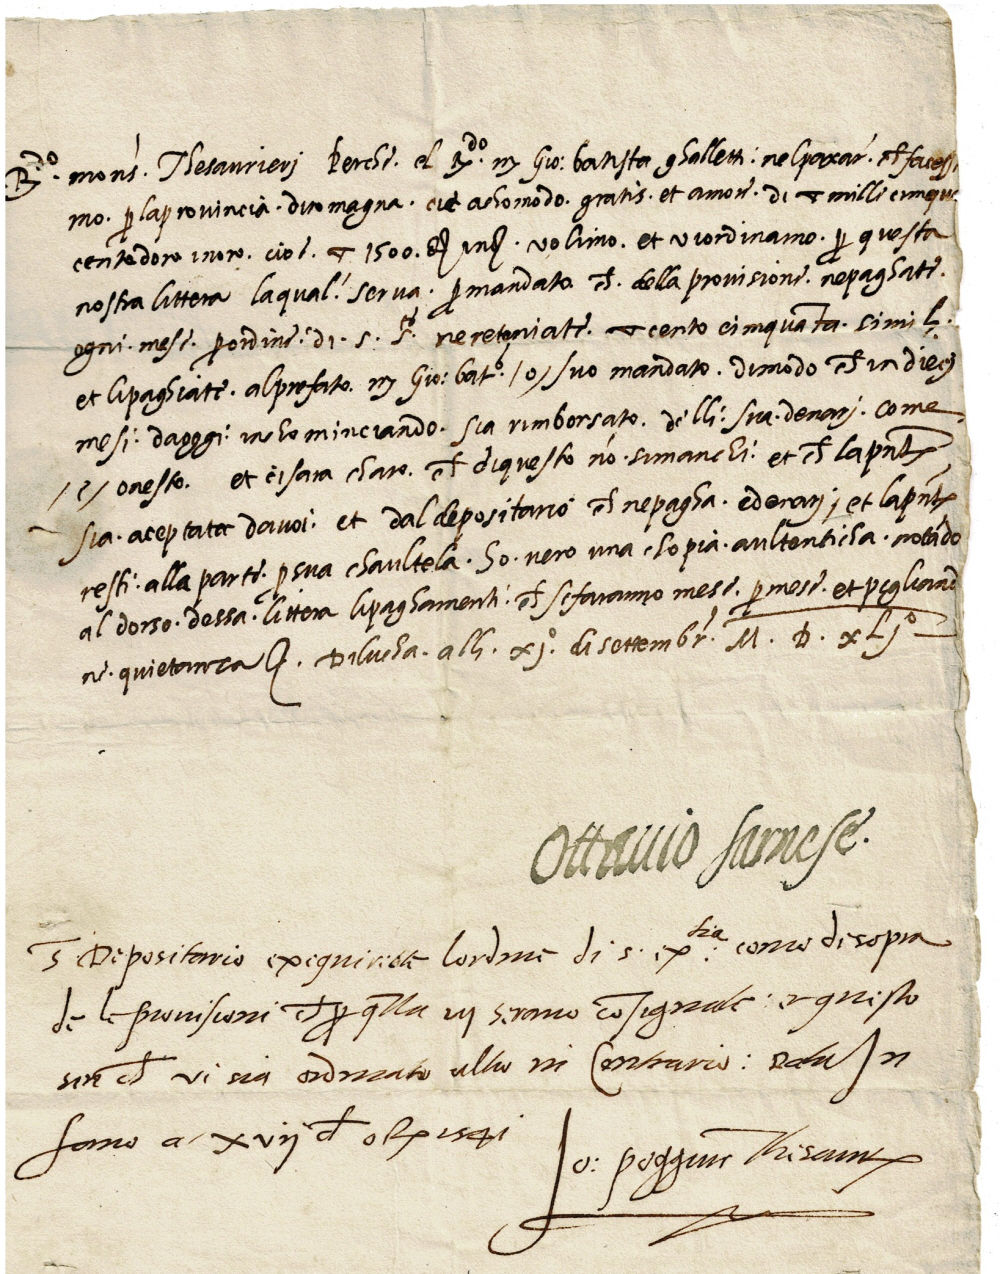 R.do mons. Thesaurierj Perche. el R.do. m Gio: batista ghalletti: nel passar. che facessi
mo. p la provincia. di romagna. ci achomodo. gratis. et amore. di mille cinque
cento doro inoro. cioe. 1500. volimo. et vi ordinamo. p questa
nostra littera laqual'. serva. p mandato. che. della provisione. ne paghate.
ogni. mese. p ordine. di. s. S.tà ne reteniate. cento cimquanta. simili.
et li paghiate. al prefato. m Gio: bat.o /o/ suo mandato. di modo che in dieci
mesi: da oggi: inchominciando. sia rimborsato. delli: sua. denarj. come
/e/ onesto. et ci sara charo. che di questo nō. si manchi: et che la pnte
sia. aceptata da voi. et dal depositario che ne pagha. e denarj; et la pnte
resti. alla parte. p sua chaultela. So. vero una chopia. aultenticha. notādo
al dorso. dessa. littera li paghamenti. che si faranno mese. p mese. et pigliand
ne. quietanza. Di lucha. alli. xj.o di settembr'. M. D. xLj.o
Ottavio farnese.
S. Depositario exequirete lordine di s. ex.tia: como di sopra
de le provisioni che p qlla vi serano cōsignate: et questo
sin che vi sia ordinato altro in Contrario: Data In
fano a xvij d' 1541
Io: poggius thesaur